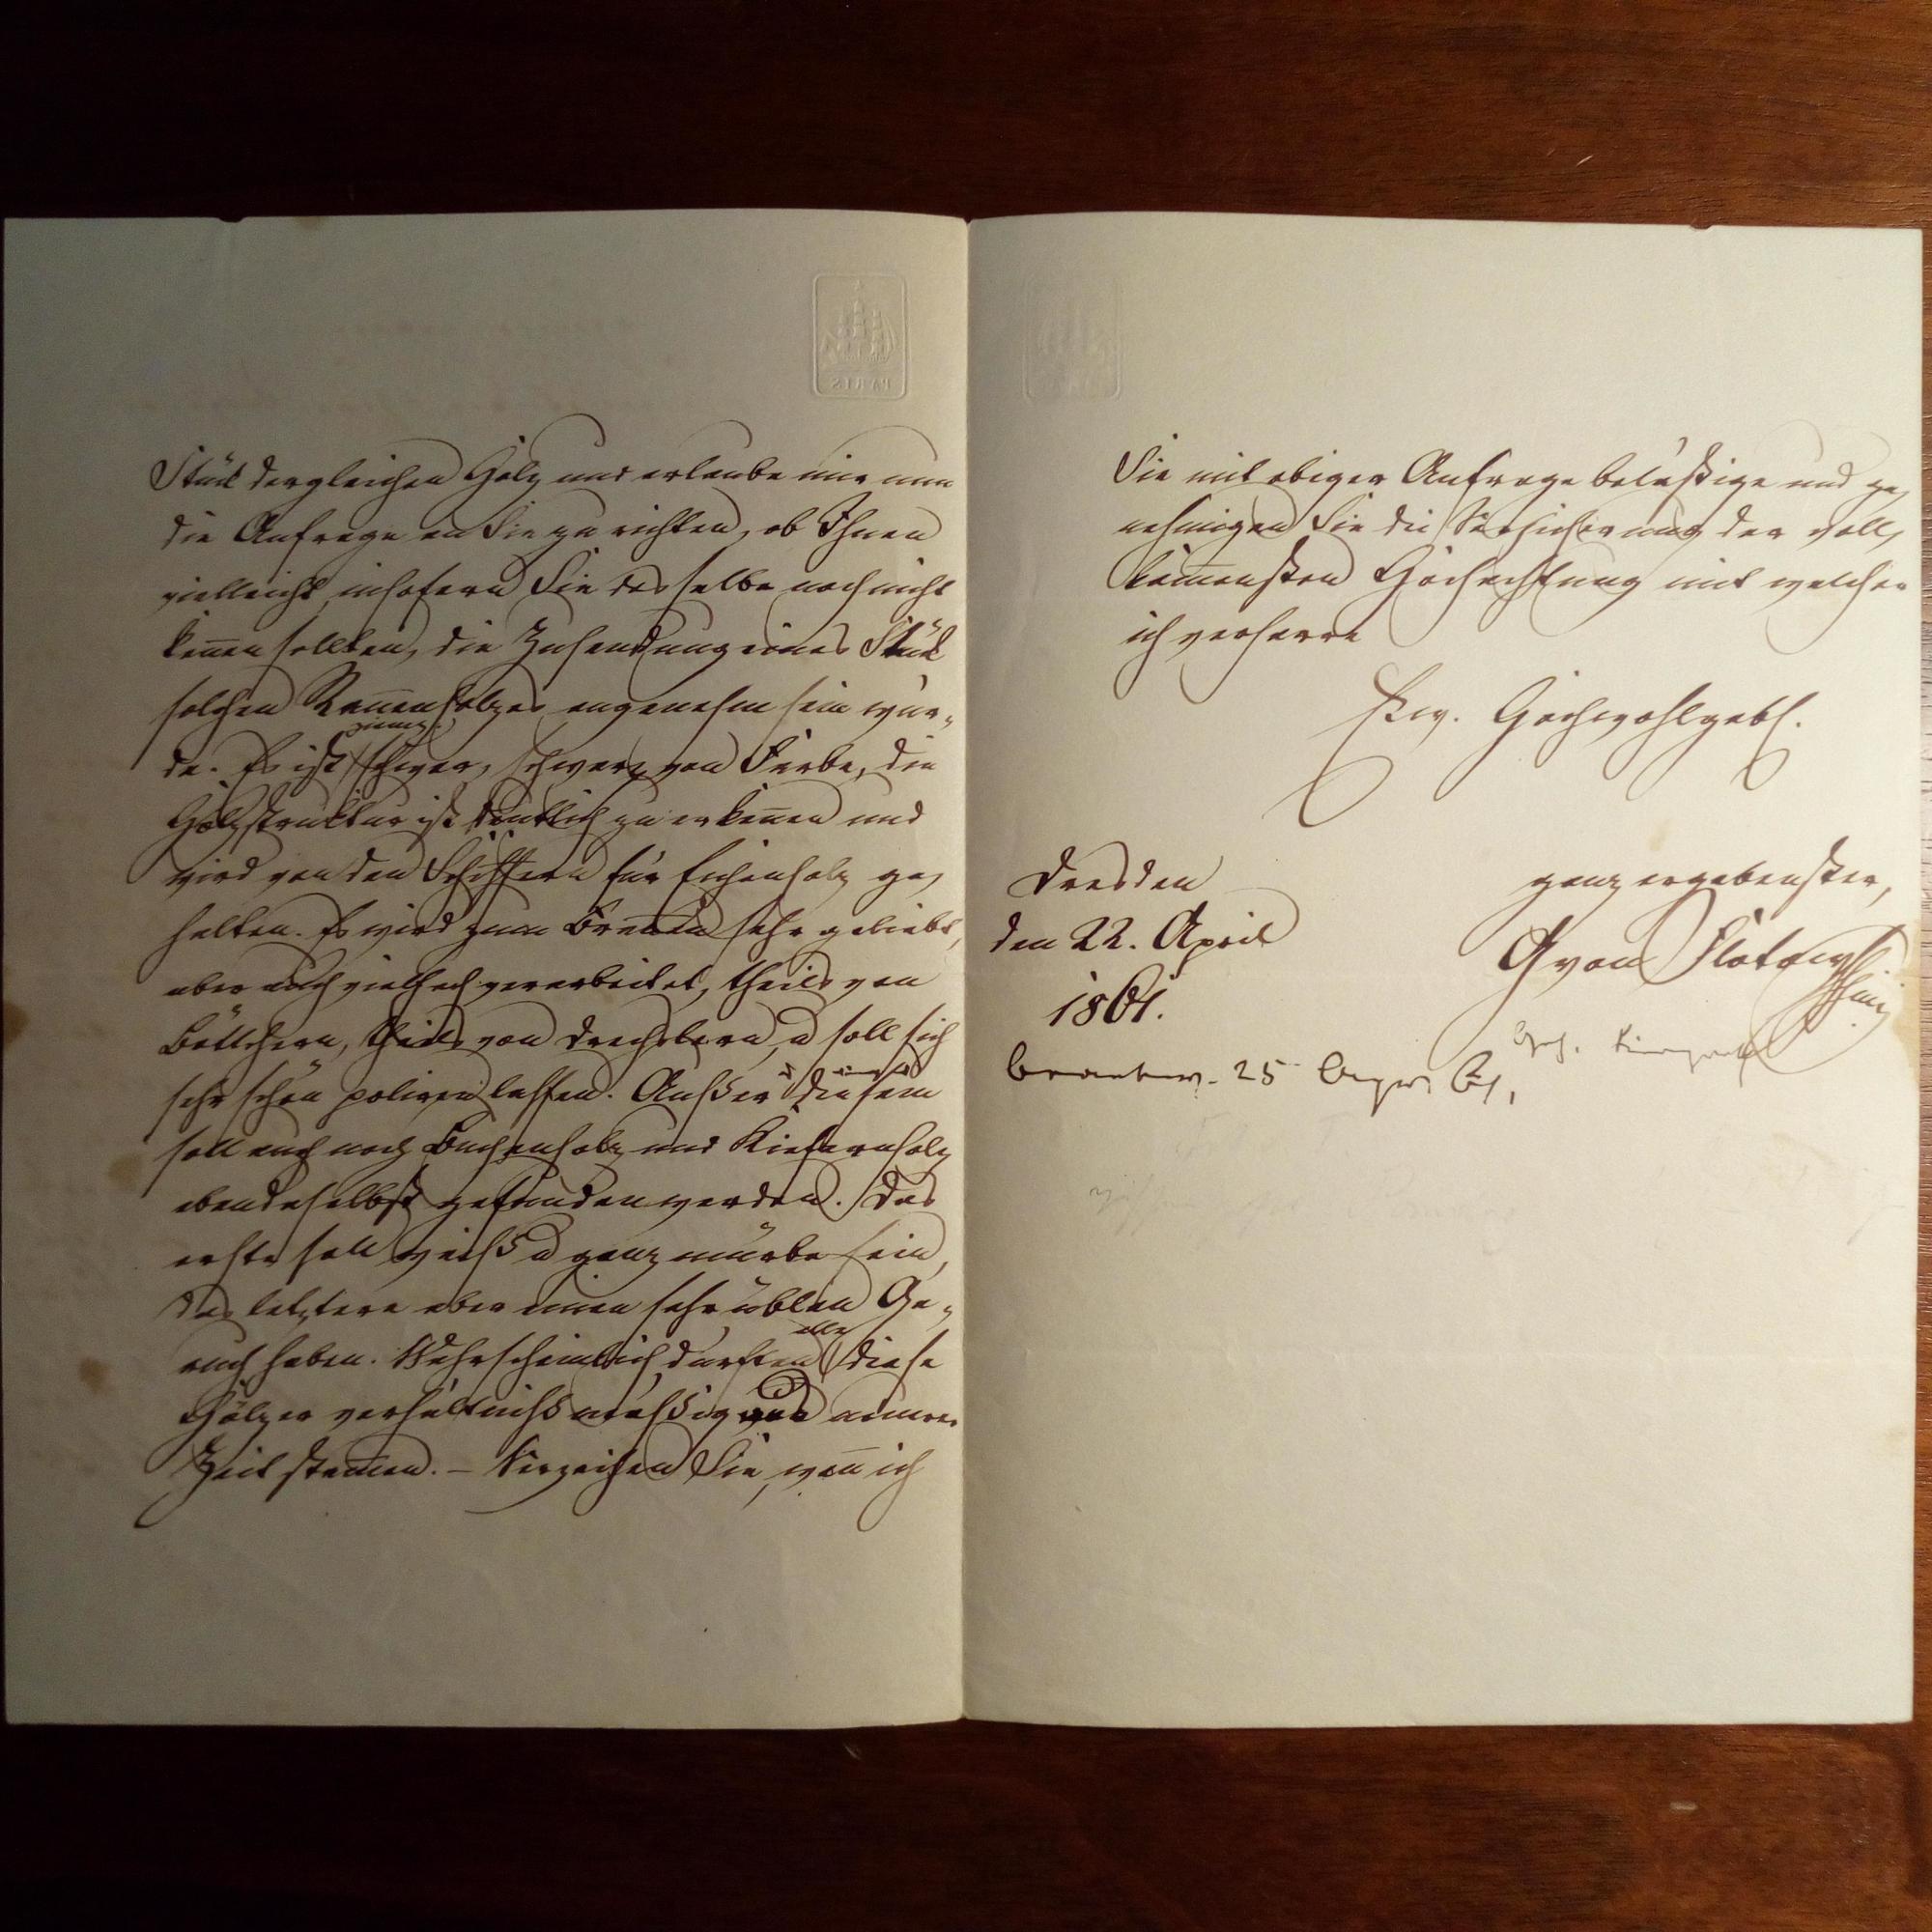 PARIS
Stück dergleichen Holz und erlaube mir nun
die Anfrage an Sie zu richten, ob Ihnen
vielleicht, insofern Sie dasselbe noch nicht
keñen sollten, die Zusendung eines Stück
solchen Holzes angenehm sein wür-
de. Es ist ziemlich schwer, schwarz von Farbe, die
Holzstruktur ist deutlich zu erkeñen und
wird von den Schiffern für Eichenholz ge-
halten. Es wird zum Breñen sehr geliebt,
aber auch vielfach verarbeitet, theils von
Böttchern, theils von Drechslern, u soll sich
sehr schön poliren lassen. Außer diesem
soll auch noch Buchenholz und Kiefernholz
ebendaselbst gefunden werden. Das
erste soll weiß u ganz mürbe sein,
das letztere aber einen sehr üblen Ge-
ruch haben. Wahrscheinlich dürften alle diese
Hölzer verhältnißmäßig aus neuerer
Zeit stam̄en. – Verzeihen Sie, weñ ich
Sie mit obiger Anfrage belästige und ge-
nehmigen Sie die Versicherung der voll-
kom̄ensten Hochachtung mit welcher
ich verharre
Ew. Hochwohlgeb.
ganz ergebenster,
Dresden
den 22. April
1861.
G von Flotow
beantw. 25 61,